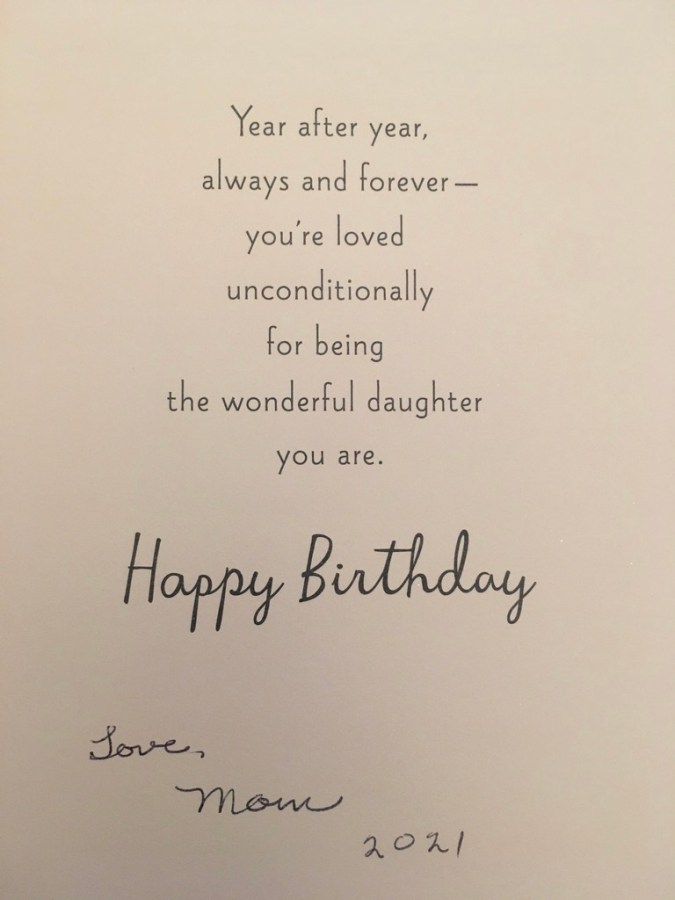 Year after year,
always and forever—
you're loved
unconditionally
for being
the wonderful daughter
you are.
Happy Birthday
Love,
Mom
2021